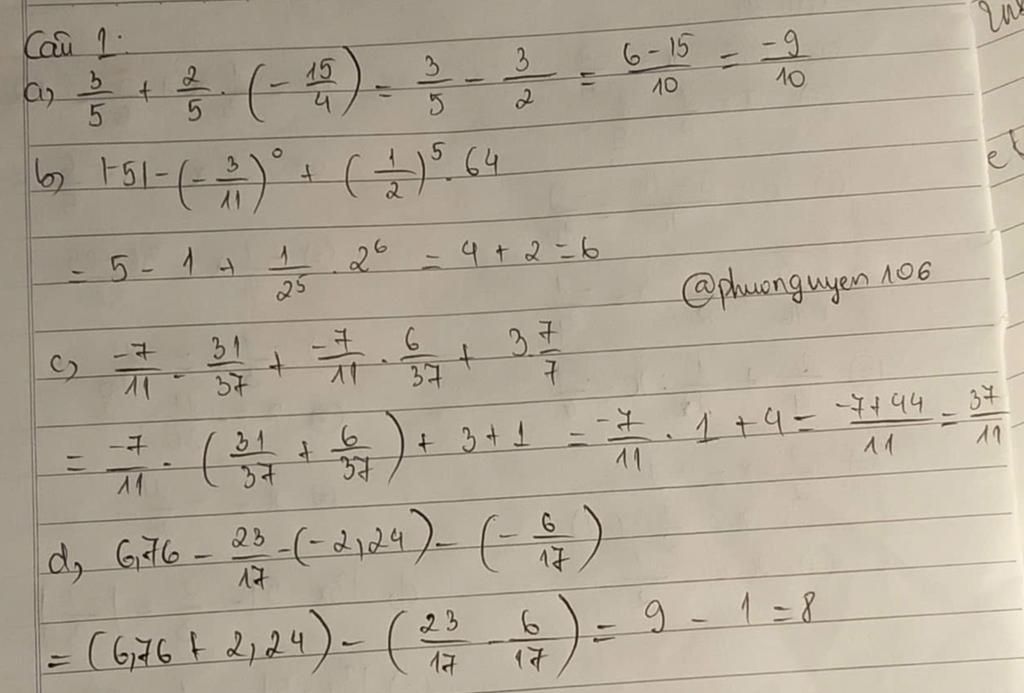 Câu 1:
a, 3/5 + 2/5 . (- 15/4) = 3/5 - 3/2 = 6-15/10 = -9/10
b, |-5| - (- 3/11)⁰ + (1/2)⁵ . 64
= 5 - 1 + 1/2⁵ . 2⁶ = 4 + 2 = 6
@phuonguyen106
c, -7/11 . 31/37 + -7/11 . 6/37 + 3 7/7
= -7/11 . (31/37 + 6/37) + 3 + 1 = -7/11 . 1 + 4 = -7+44/11 = 37/11
d, 6,76 - 23/17 - (-2,24) - (- 6/17)
= (6,76 + 2,24) - (23/17 - 6/17) = 9 - 1 = 8